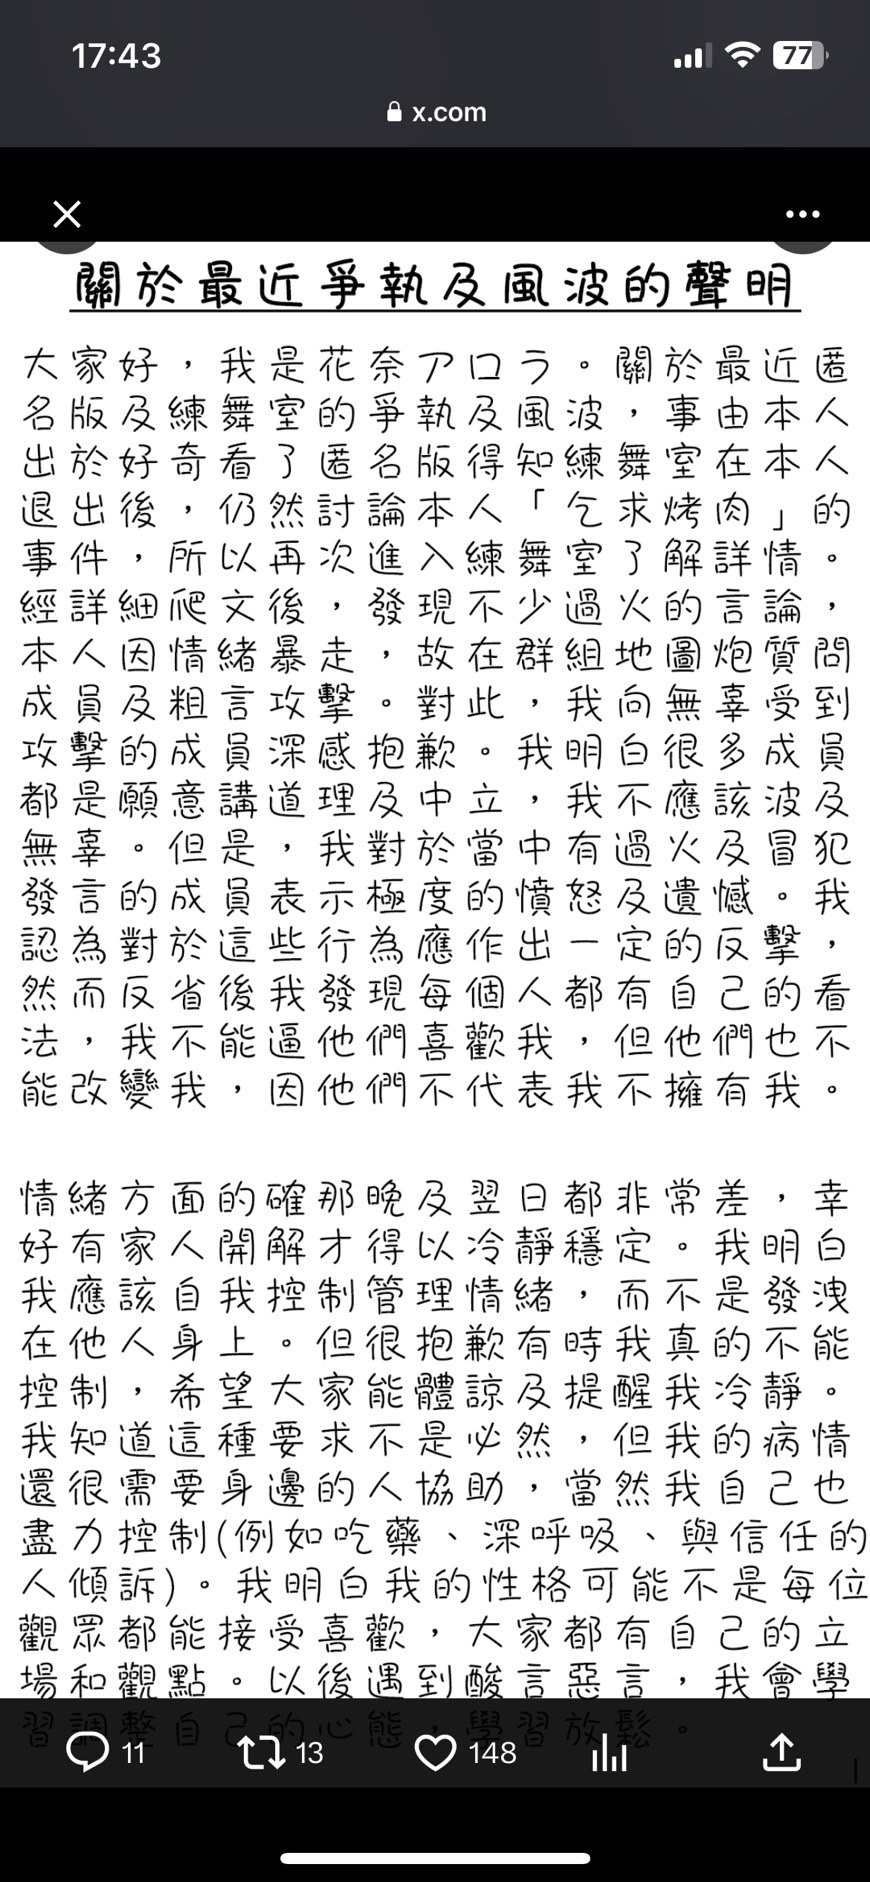 17:43
77
x.com
關於最近爭執及風波的聲明
大家好，我是花奈アロラ。關於最近匿
名版及練舞室的爭執及風波，事由本人
出於好奇看了匿名版得知練舞室在本人
退出後，仍然討論本人「乞求烤肉」的
事件，所以再次進入練舞室了解詳情。
經詳細爬文後，發現不少過火的言論，
本人因情緒暴走，故在群組地圖炮質問
成員及粗言攻擊。對此，我向無辜受到
攻擊的成員深感抱歉。我明白很多成員
都是願意講道理及中立，我不應該波及
無辜。但是，我對於當中有過火及冒犯
發言的成員表示極度的憤怒及遺憾。我
認為對於這些行為應作出一定的反擊，
然而反省後我發現每個人都有自己的看
法，我不能逼他們喜歡我，但他們也不
能改變我，因他們不代表我不擁有我。
情緒方面的確那晚及翌日都非常差，幸
好有家人開解才得以冷靜穩定。我明白
我應該自我控制管理情緒，而不是發洩
在他人身上。但很抱歉有時我真的不能
控制，希望大家能體諒及提醒我冷靜。
我知道這種要求不是必然，但我的病情
還很需要身邊的人協助，當然我自己也
盡力控制(例如吃藥、深呼吸、與信任的
人傾訴)。我明白我的性格可能不是每位
觀眾都能接受喜歡，大家都有自己的立
場和觀點。以後遇到酸言惡言，我會學
習調整自己的心態，學習放鬆。
11
13
148